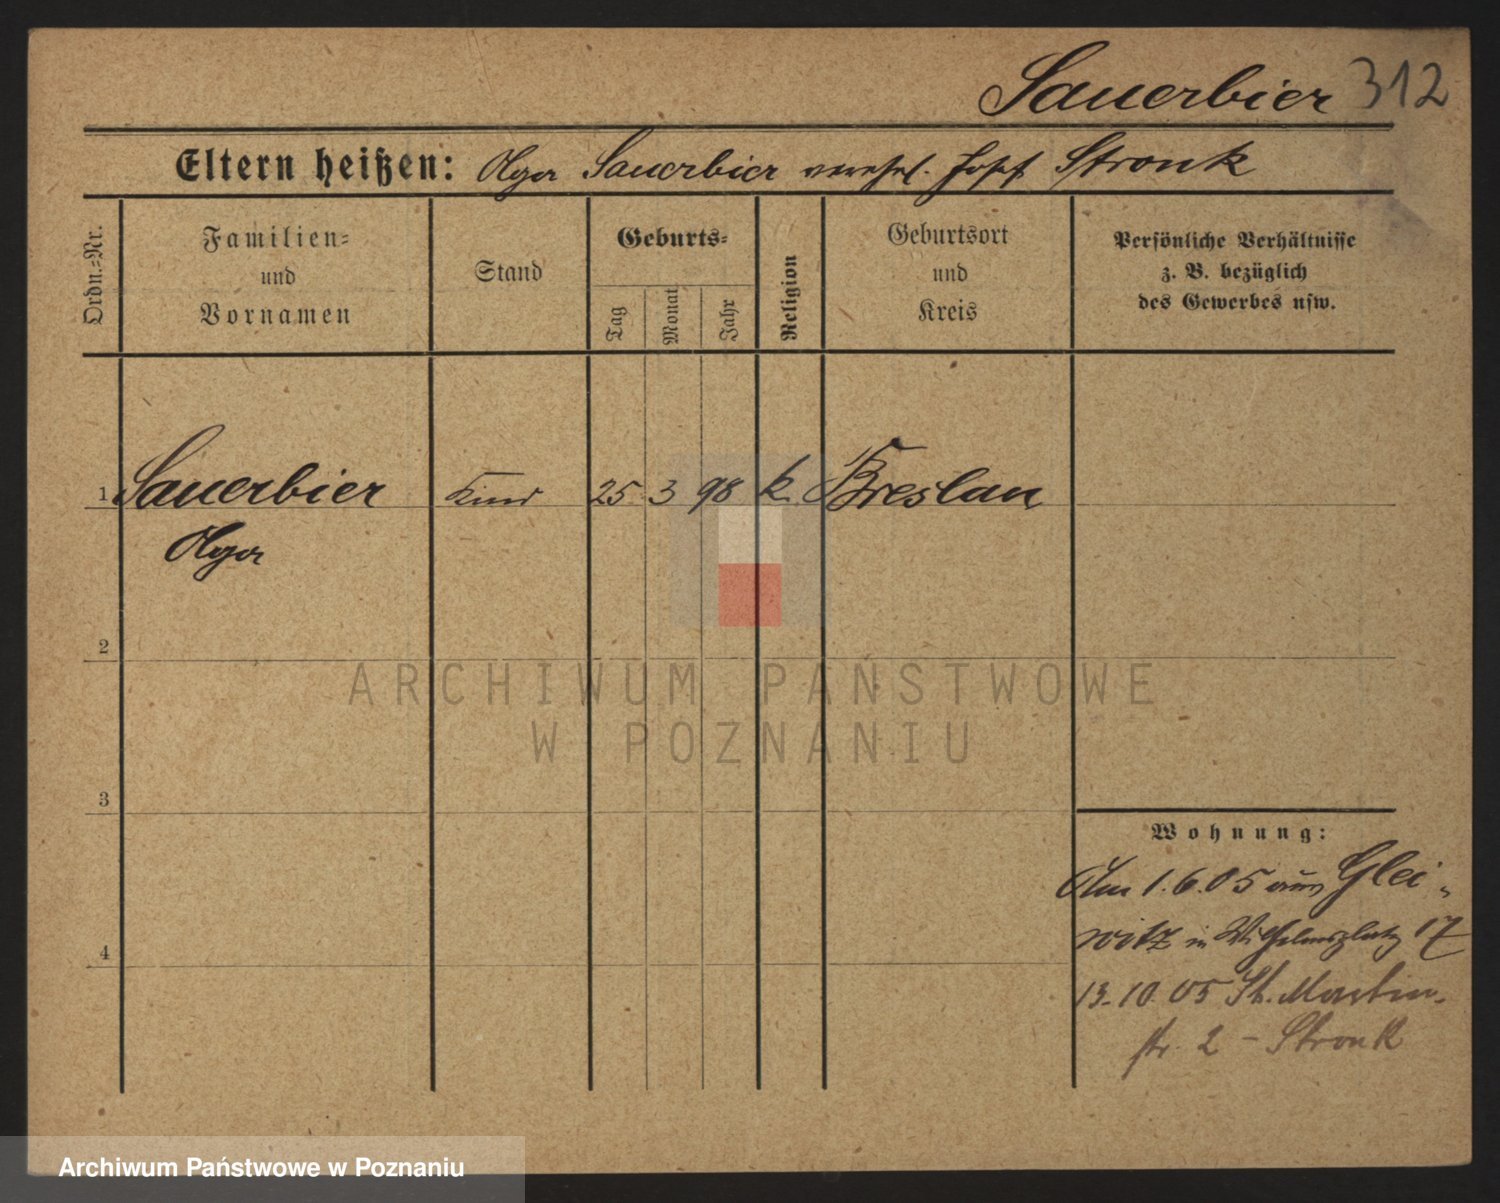 Sauerbier 312
Eltern heißen: Olga Sauerbier verehel. Josef Stronk
Ordn.-Nr.
Familien-
und
Vornamen
Stand
Geburts-
Tag
Monat
Jahr
Religion
Geburtsort
und
Kreis
Persönliche Verhältnisse
z. B. bezüglich
des Gewerbes usw.
1 Sauerbier Kind 25 3 98 k. Breslau
Olga
2
ARCHIWUM PAŃSTWOWE
W POZNANIU
3
Wohnung:
Am 1.6.05 aus Glei-
witz in Wilhelmsplatz 17
4
13.10.05 St. Martin-
str. 2 - Stronk
Archiwum Państwowe w Poznaniu